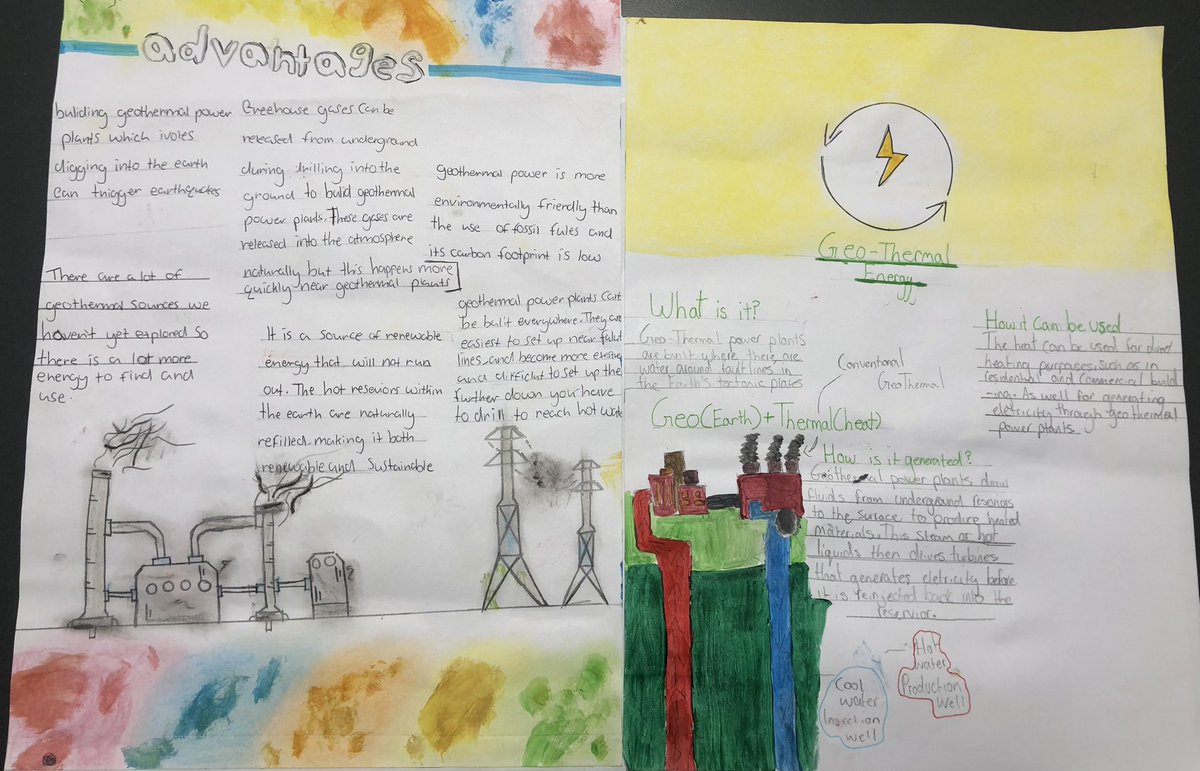 advantages
buliding geothermal power
plants which ivoles
digging into the earth
can tnigger earthquakes
There are a lot of
geothermal sources we
haven't yet explored so
there is a lot more
energy to find and
use.
Greehouse gases can be
released from underground
during drilling into the
ground to build geothermal
power plants. These gases are
released into the atmosphere
naturally but this happens more
quickly near geothermal plants
It is a source of renewable
energy that will not run
out. The hot resviors within
the earth are naturally
refilled, making it both
renewable and Sustainable
geothermal power is more
environmentally friendly than
the use of fossil fules and
its carbon footprint is low
geothermal power plants cant
be bulit everywhere. They are
easiest to set up near fault
lines, and become more
and difficult to set up the
further down you have
to drill to reach hot
Geo-Thermal
Energy
What is it?
Geo-Thermal power plants
are built where there are
water around fault lines in
the Earth's tectonic plates
Conventional
GeoThermal
Geo(Earth)+Thermal(heat)
How it can be used
The heat can be used for direct
heating purposes, such as in
residential and commercial build
-ing. As well for generating
eletricity through geothermal
power plants
How is it generated?
Geothermal power plants draw
fluids from underground resviors
to the surface to produce heated
materials. This steam or hot
liquids then drives turbines
that generates eletricity before
it is reinjected back into the
reservior.
Hot
water
Production
Well
Cool
water
Injection
well